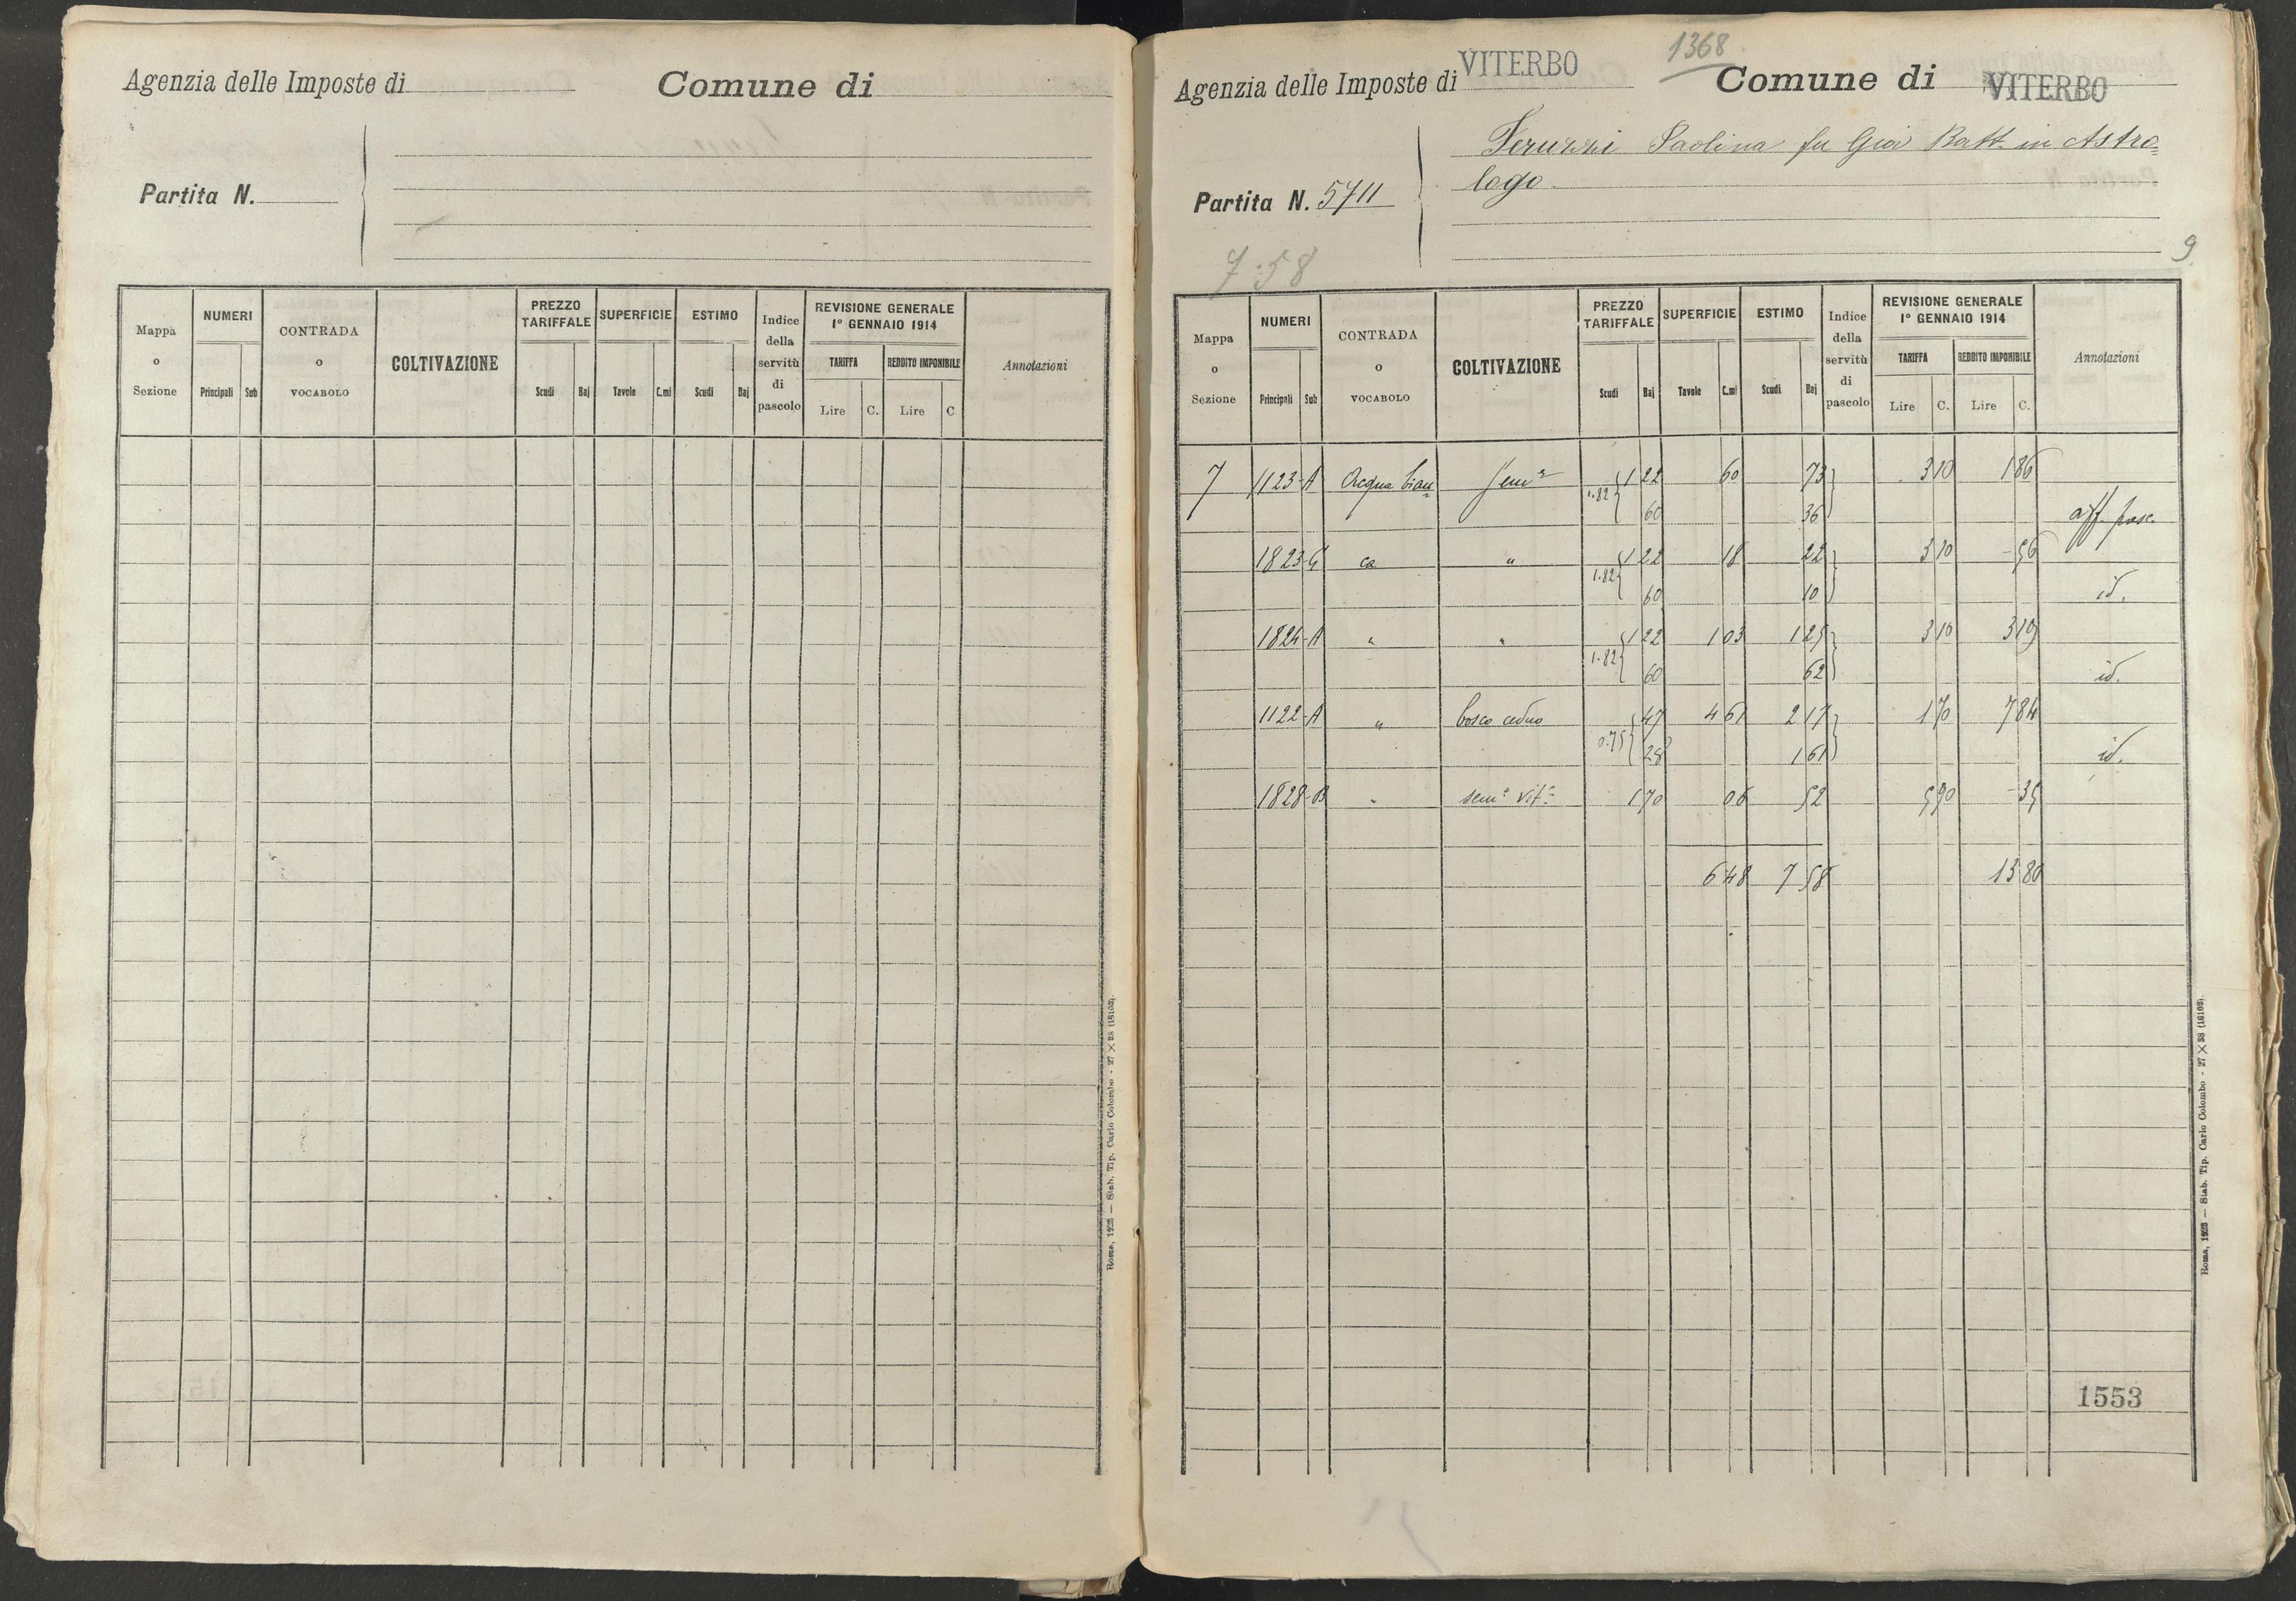 Agenzia delle Imposte di Comune di
Partita N.
Mappa o Sezione NUMERI Principali Sub CONTRADA o VOCABOLO COLTIVAZIONE PREZZO TARIFFALE Scudi Baj SUPERFICIE Tavole C.mi ESTIMO Scudi Baj Indice della servitù di pascolo REVISIONE GENERALE 1° GENNAIO 1914 TARIFFA Lire C. REDDITO IMPONIBILE Lire C Annotazioni
Roma, 1923 — Stab. Tip. Carlo Colombo - 27 X 38 (16103).
1368
Agenzia delle Imposte di VITERBO Comune di VITERBO
Peruzzi Paolina fu Gio Batt. in Astro=
logo.
Partita N. 5711
7:58
9
Mappa o Sezione NUMERI Principali Sub CONTRADA o VOCABOLO COLTIVAZIONE PREZZO TARIFFALE Scudi Baj SUPERFICIE Tavole C.mi ESTIMO Scudi Baj Indice della servitù di pascolo REVISIONE GENERALE 1° GENNAIO 1914 TARIFFA Lire C. REDDITO IMPONIBILE Lire C. Annotazioni
7 1123 A Acqua bian= Semo 1.82 1 22 60 73 3 10 1 86
60 36 aff. pasc.
1823 G ca " 1.82 1 22 18 22 3 10 - 56
60 10 id.
1824 A " " 1.82 1 22 1 03 1 25 3 10 3 19
60 62 id.
1122 A " bosco ceduo 0.75 47 4 61 2 17 1 70 7 84
28 1 61 id.
1828 B " semo vito 1 70 06 52 5 90 - 35
6 48 7 58 13 80
1553
Roma, 1923 — Stab. Tip. Carlo Colombo - 27 X 38 (16103).